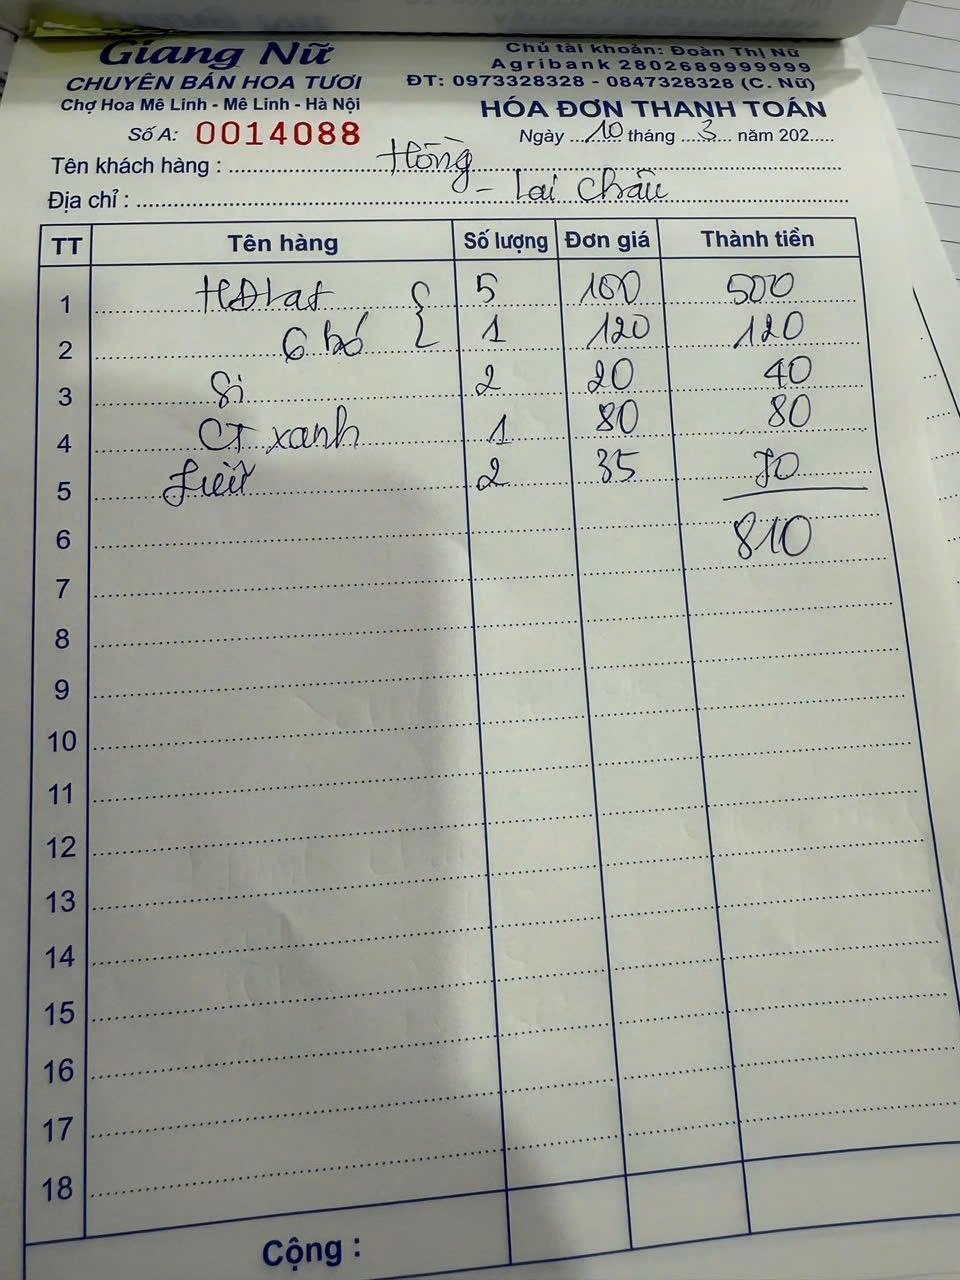 Giang Nữ
CHUYÊN BÁN HOA TƯƠI
Chợ Hoa Mê Linh - Mê Linh - Hà Nội
Số A: 0014088
Chủ tài khoản: Đoàn Thị Nữ
Agribank 2802689999999
ĐT: 0973328328 - 0847328328 (C. Nữ)
HÓA ĐƠN THANH TOÁN
Ngày 10 tháng 3 năm 202
Tên khách hàng : Hồng
Địa chỉ : - Lai Châu
TT Tên hàng Số lượng Đơn giá Thành tiền
1 HĐLat 5 100 500
2 6 bó 1 120 120
3 Si 2 20 40
4 CT xanh 1 80 80
5 2 35 70
6 810
7
8
9
10
11
12
13
14
15
16
17
18
Cộng :